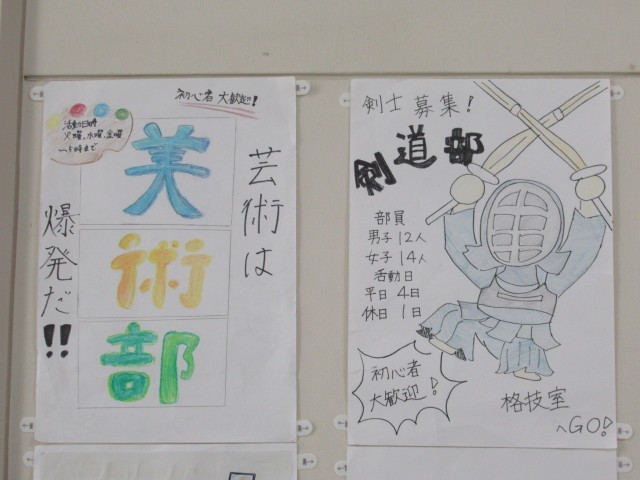 初心者 大歓迎!!
活動日時
火曜、水曜、金曜
〜5時まで
芸術は
爆発だ!!
美
術
部
剣士 募集!
剣道部
部員
男子 12人
女子 14人
活動日
平日 4日
休日 1日
初心者
大歓迎!
格技室
へGO!